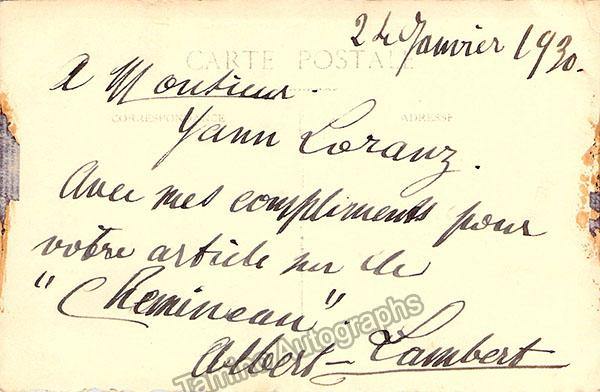 24 Janvier 1930.
CARTE POSTALE
A Monsieur.
CORRESPONDANCE ADRESSE
Yann Loranz.
Avec mes compliments pour
votre article sur le
"Chemineau".
Albert-Lambert
Tamino Autographs